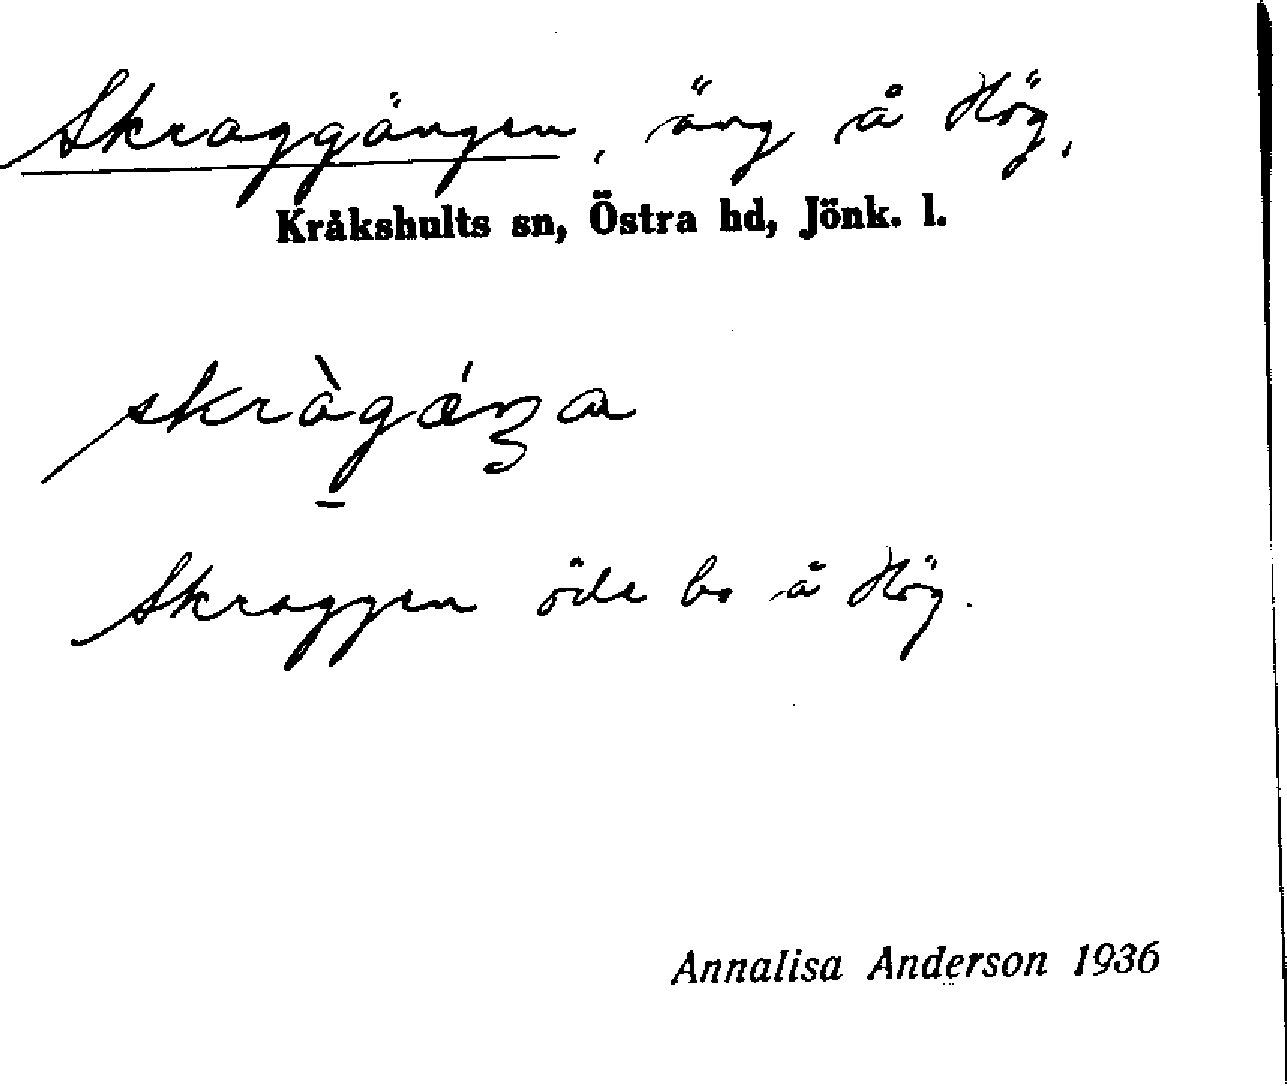 Skraggängen, äng å Hög,
Kråkshults sn, Östra hd, Jönk. l.
skràgǽŋa
Skraggen öde bo å Hög.
Annalisa Anderson 1936